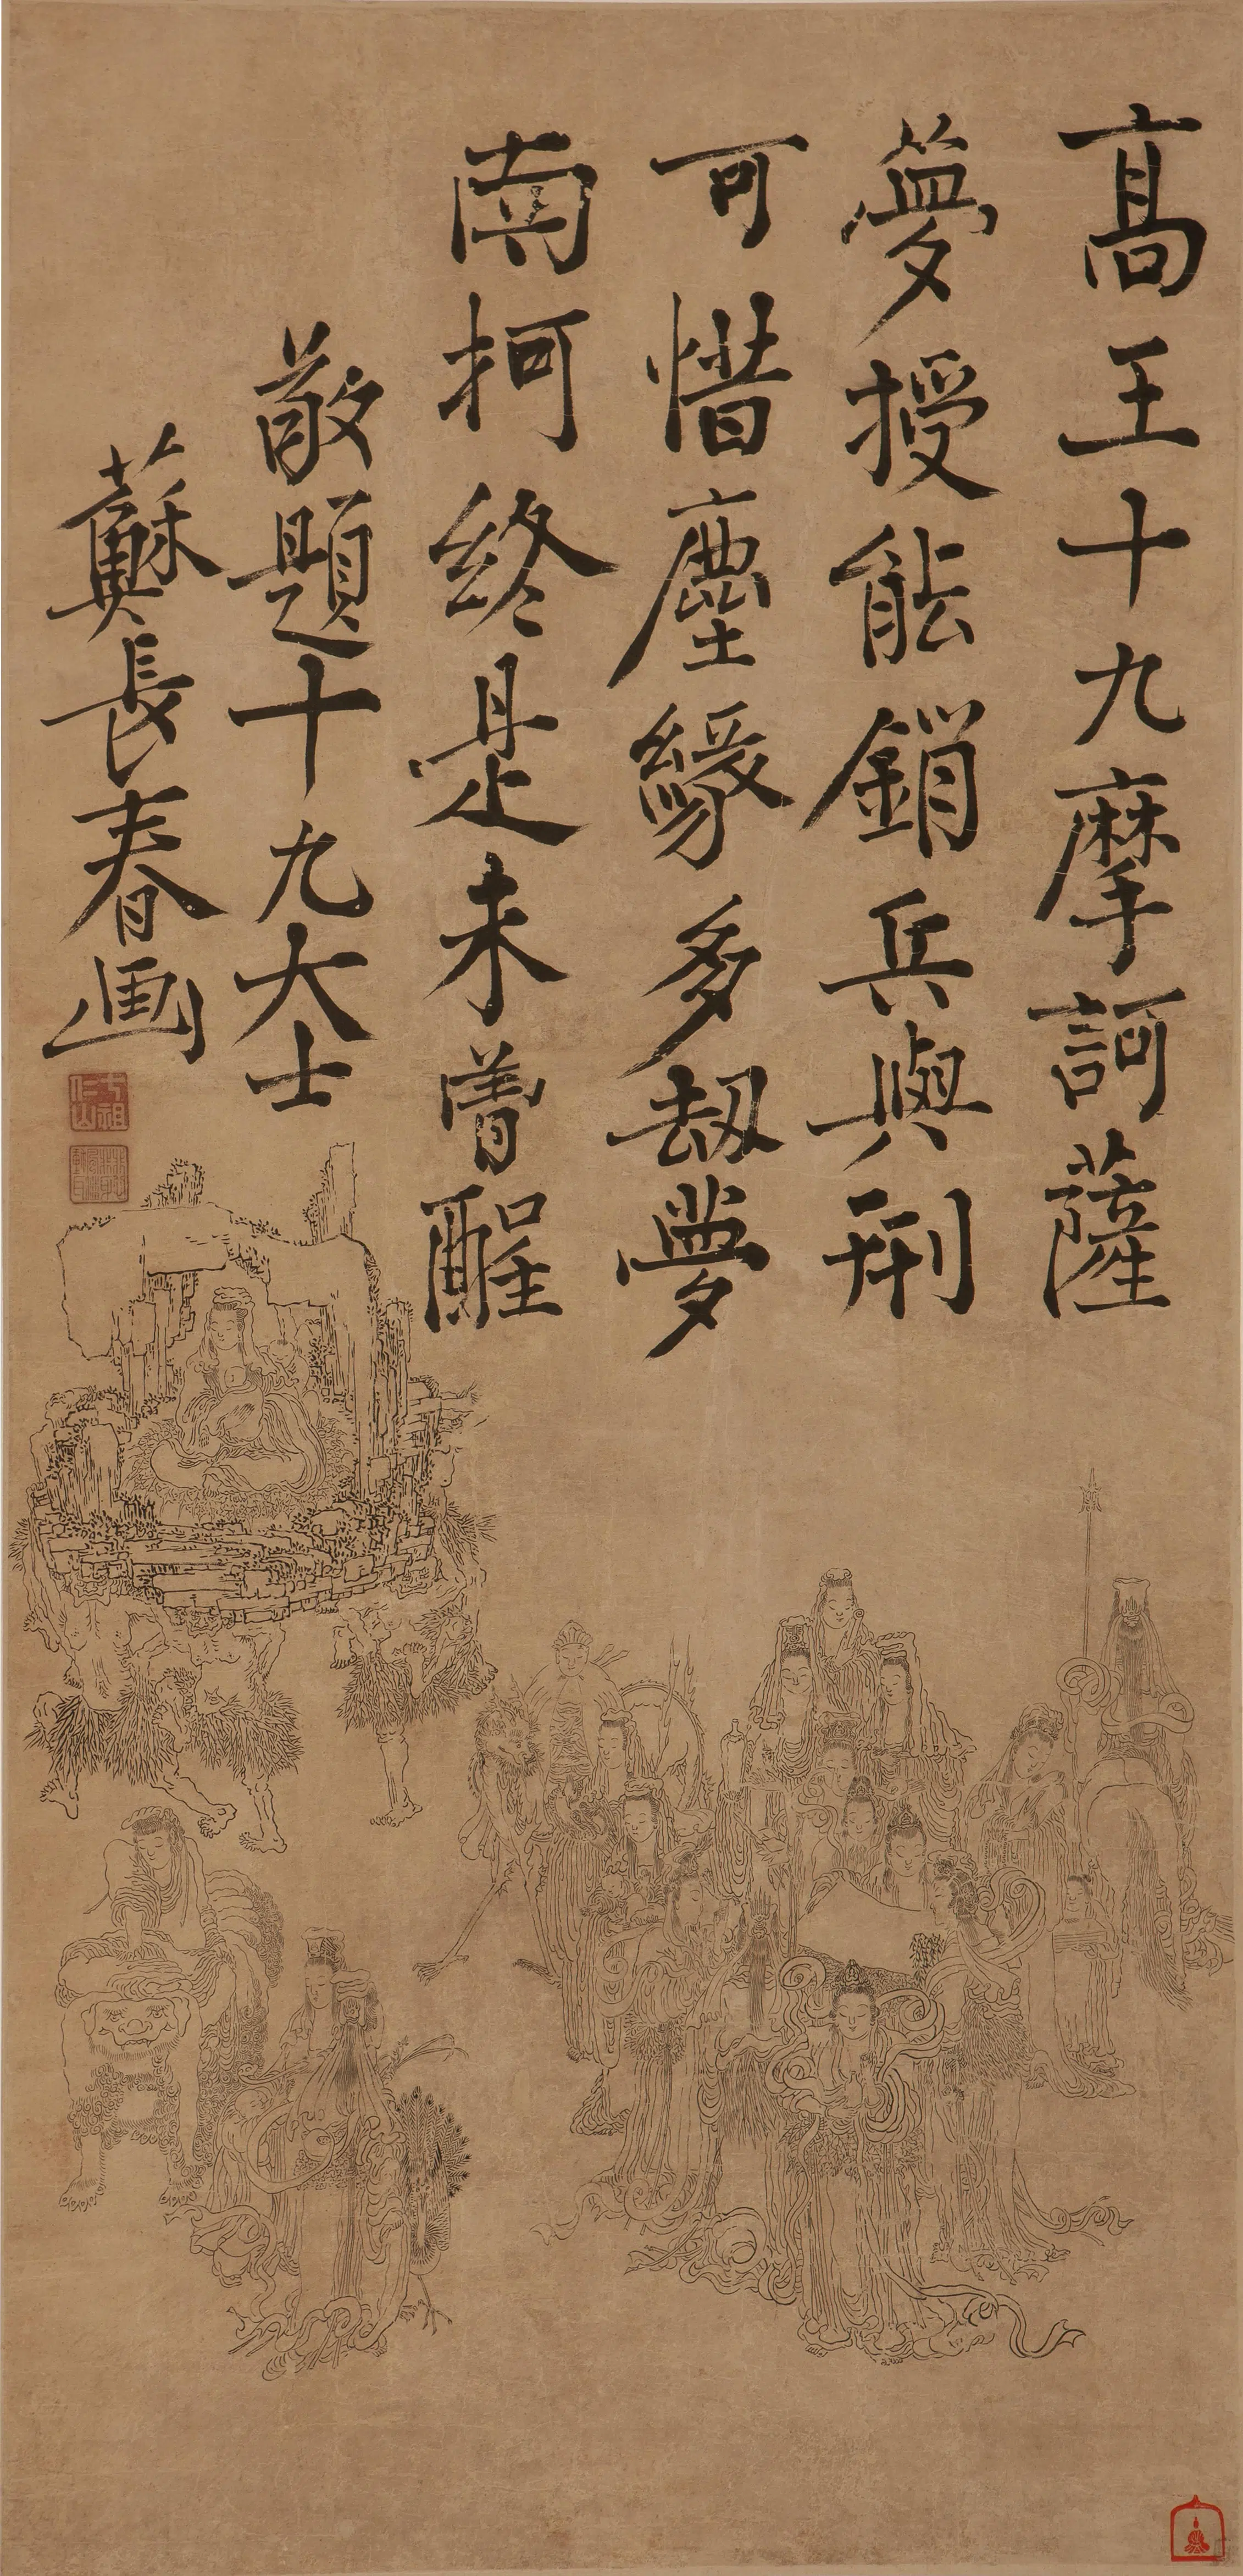 高王十九摩訶薩
夢授能銷兵與刑
可惜塵緣多劫夢
南柯終是未曾醒
敬題十九大士
蘇長春画
七祖仁山